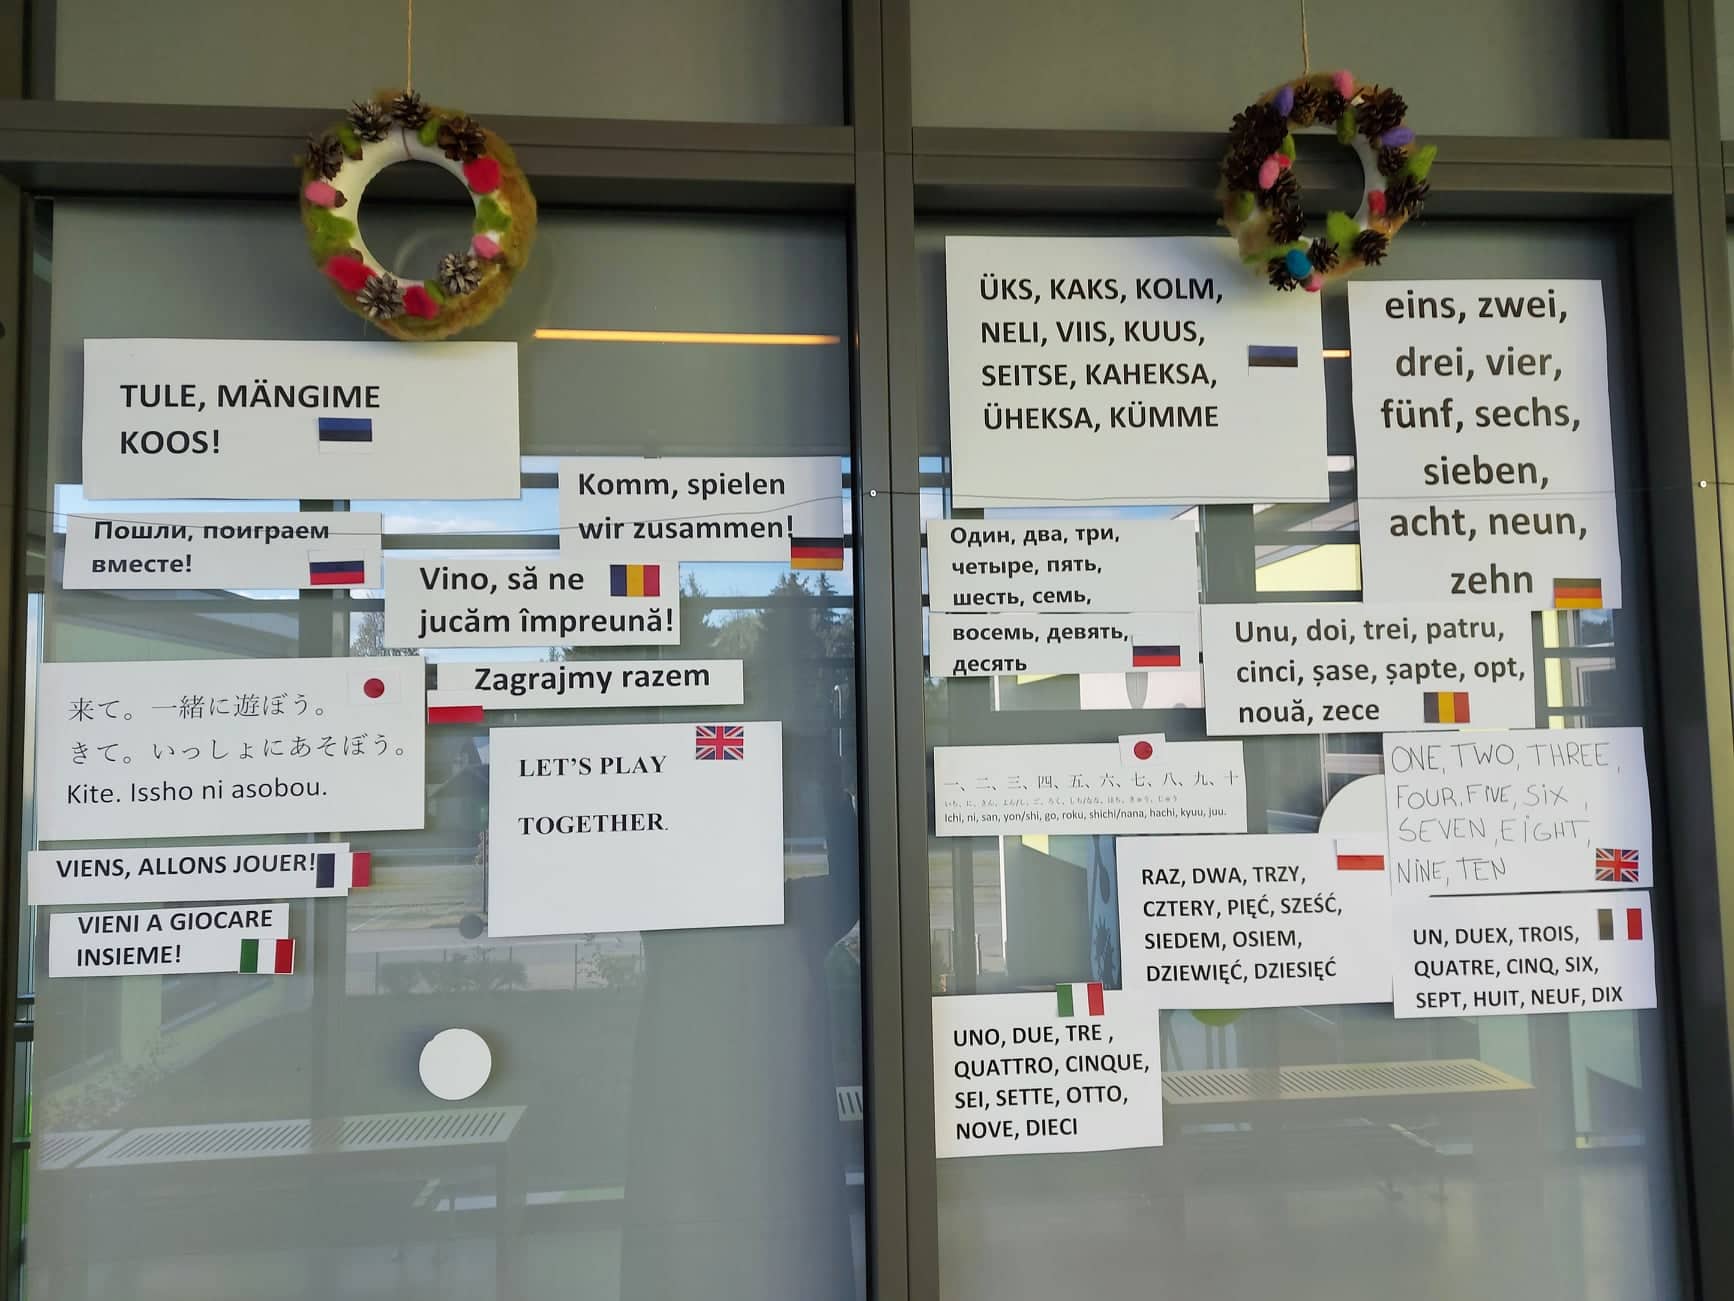 TULE, MÄNGIME
KOOS!
Komm, spielen
wir zusammen!
Пошли, поиграем
вместе!
Vino, să ne
jucăm împreună!
Zagrajmy razem
来て。一緒に遊ぼう。
きて。いっしょにあそぼう。
Kite. Issho ni asobou.
LET'S PLAY
TOGETHER.
VIENS, ALLONS JOUER!
VIENI A GIOCARE
INSIEME!
ÜKS, KAKS, KOLM,
NELI, VIIS, KUUS,
SEITSE, KAHEKSA,
ÜHEKSA, KÜMME
eins, zwei,
drei, vier,
fünf, sechs,
sieben,
acht, neun,
zehn
Один, два, три,
четыре, пять,
шесть, семь,
восемь, девять,
десять
Unu, doi, trei, patru,
cinci, șase, șapte, opt,
nouă, zece
一、二、三、四、五、六、七、八、九、十
いち、に、さん、よん/し、ご、ろく、しち/なな、はち、きゅう、じゅう
Ichi, ni, san, yon/shi, go, roku, shichi/nana, hachi, kyuu, juu.
ONE, TWO, THREE,
FOUR, FIVE, SIX,
SEVEN, EIGHT,
NINE, TEN
RAZ, DWA, TRZY,
CZTERY, PIĘĆ, SZEŚĆ,
SIEDEM, OSIEM,
DZIEWIĘĆ, DZIESIĘĆ
UN, DUEX, TROIS,
QUATRE, CINQ, SIX,
SEPT, HUIT, NEUF, DIX
UNO, DUE, TRE ,
QUATTRO, CINQUE,
SEI, SETTE, OTTO,
NOVE, DIECI